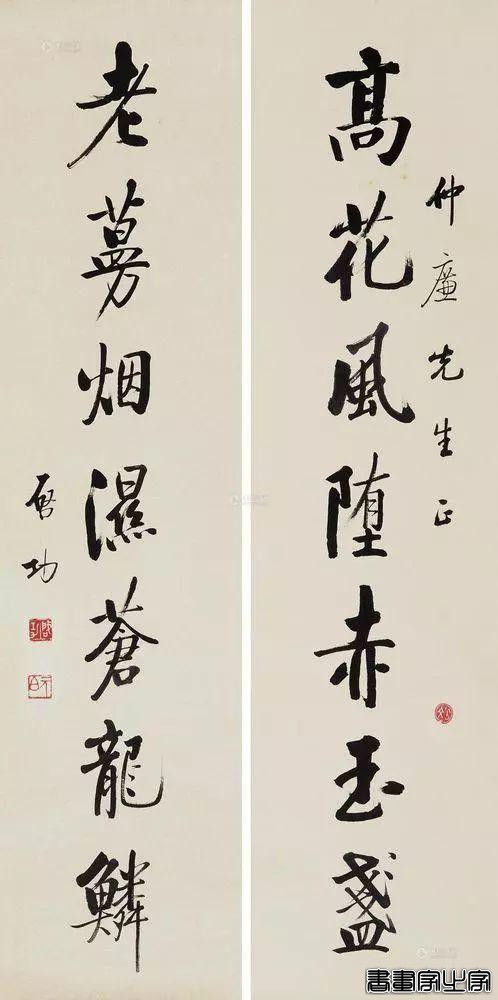 高花風堕赤玉盞
仲廉先生正
老蔓烟濕蒼龍鱗
启功
書畫家必字